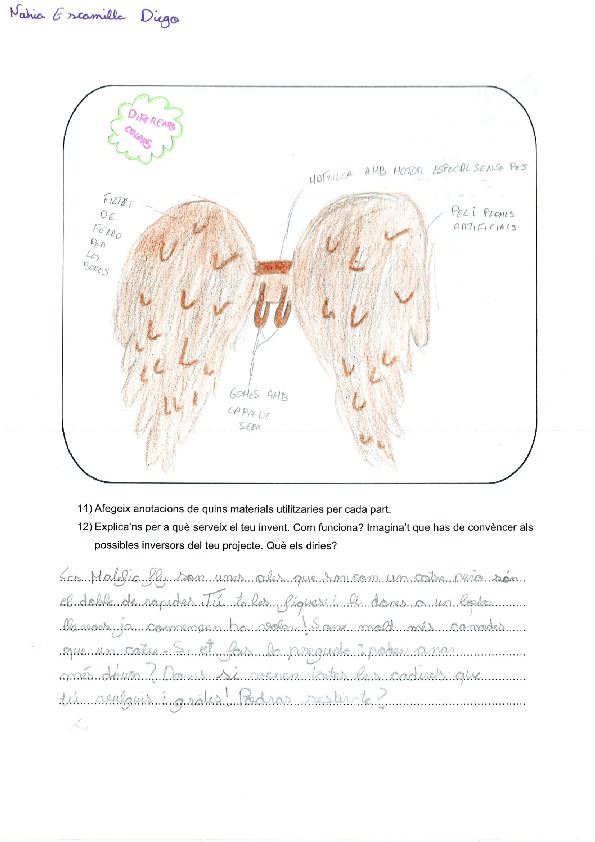 Nahia Escamilla Diego
DIFERENTS
COLORS
MOTXILLA AMB MOTOR ESPECIAL SENSE PES
DE
FERRO
PER
LES
BORES
PEL I PLOMES
ARTIFICIALS
GOMES AMB
CAPA DE
SEDA
11) Afegeix anotacions de quins materials utilitzaries per cada part.
12) Explica'ns per a què serveix el teu invent. Com funciona? Imagina't que has de convèncer als
possibles inversors del teu projecte. Què els diries?
Les son unes ales que son com un cotxe pero són
el doble de rapides Tú te les fiques i li dones a un
llavors ja comencen ha volar! Sone molt més comodes
que un cotxe. Si et fas la pregunta: poden anar
més d'una? Doncs si venen totes les cadires que
tú vulguis i gratis! Podras resistirte?